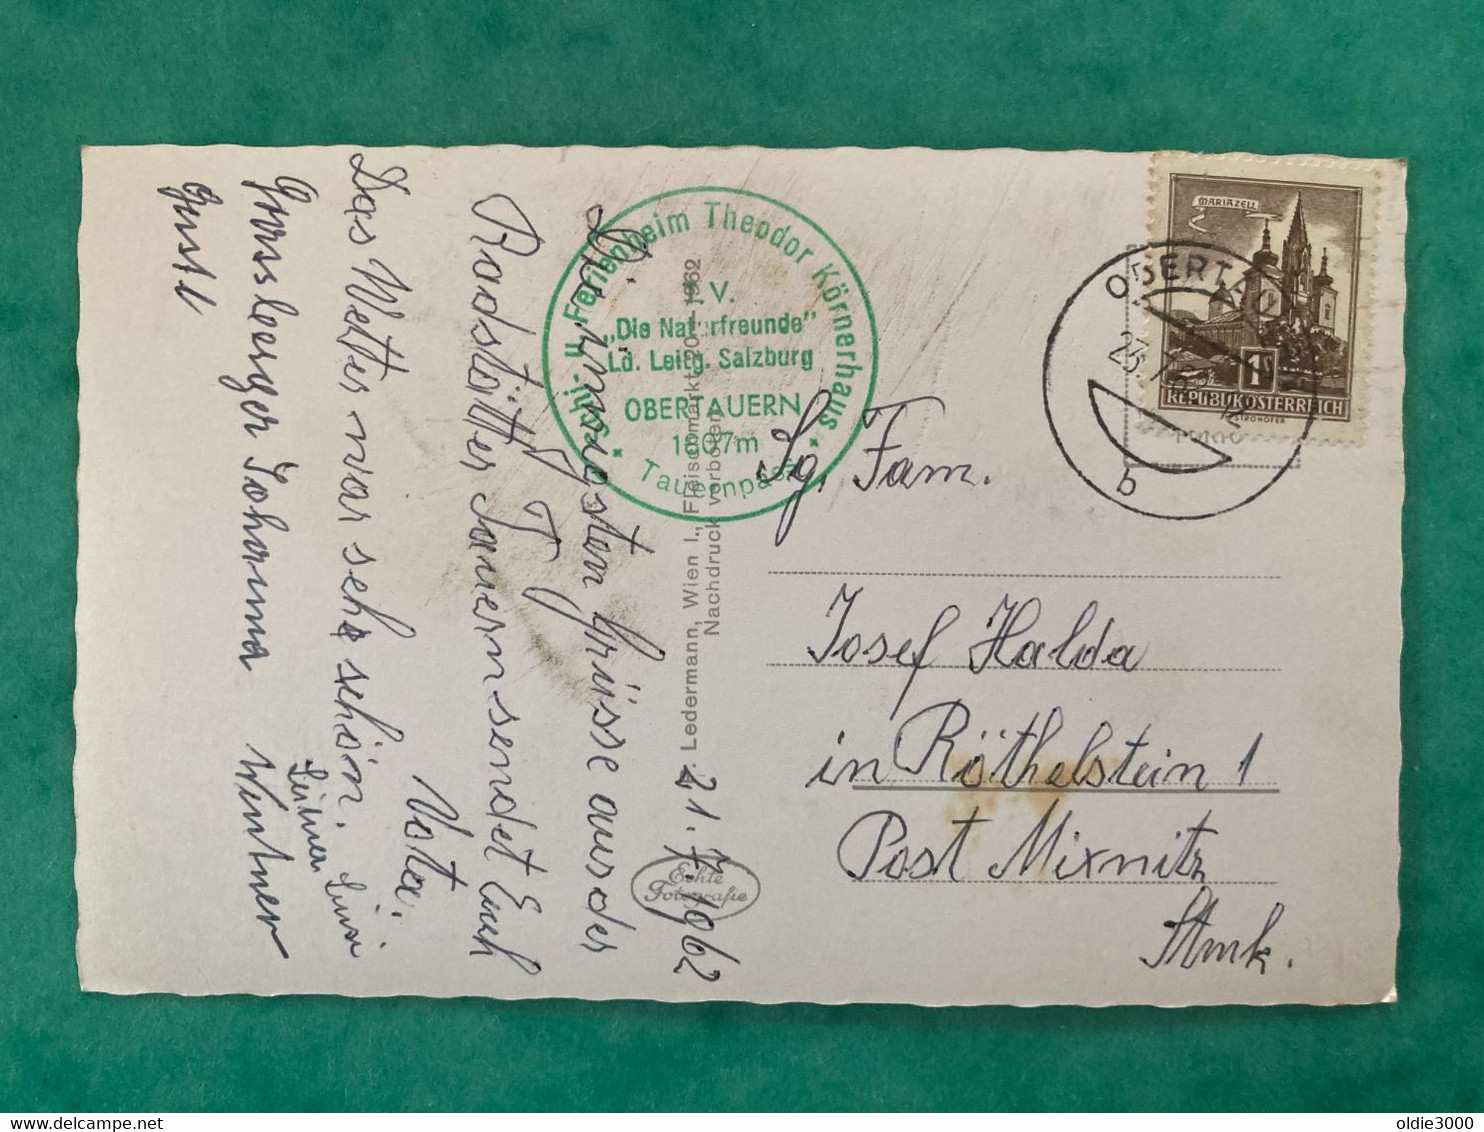 21. 7. 1962
Die innigsten Grüsse aus der
Radstätter Tauern sendet Euch
Vota.
Das Wetter war sehr schön.
Johanna
Schi- u. Ferienheim Theodor Körnerhaus
T.V.
„Die Naturfreunde"
Ld. Leitg. Salzburg
OBERTAUERN
1807m
* Tauernpass *
P. Ledermann, Wien I., Fleischmarkt 20 — 1962
Nachdruck verboten
Echte
Fotografie
MARIAZELL
1S
REPUBLIK ÖSTERREICH
OBERTAUERN
b
Sg. Fam.
Josef Halda
in Röthelstein 1
Post Mixnitz
Stmk.
oldie3000